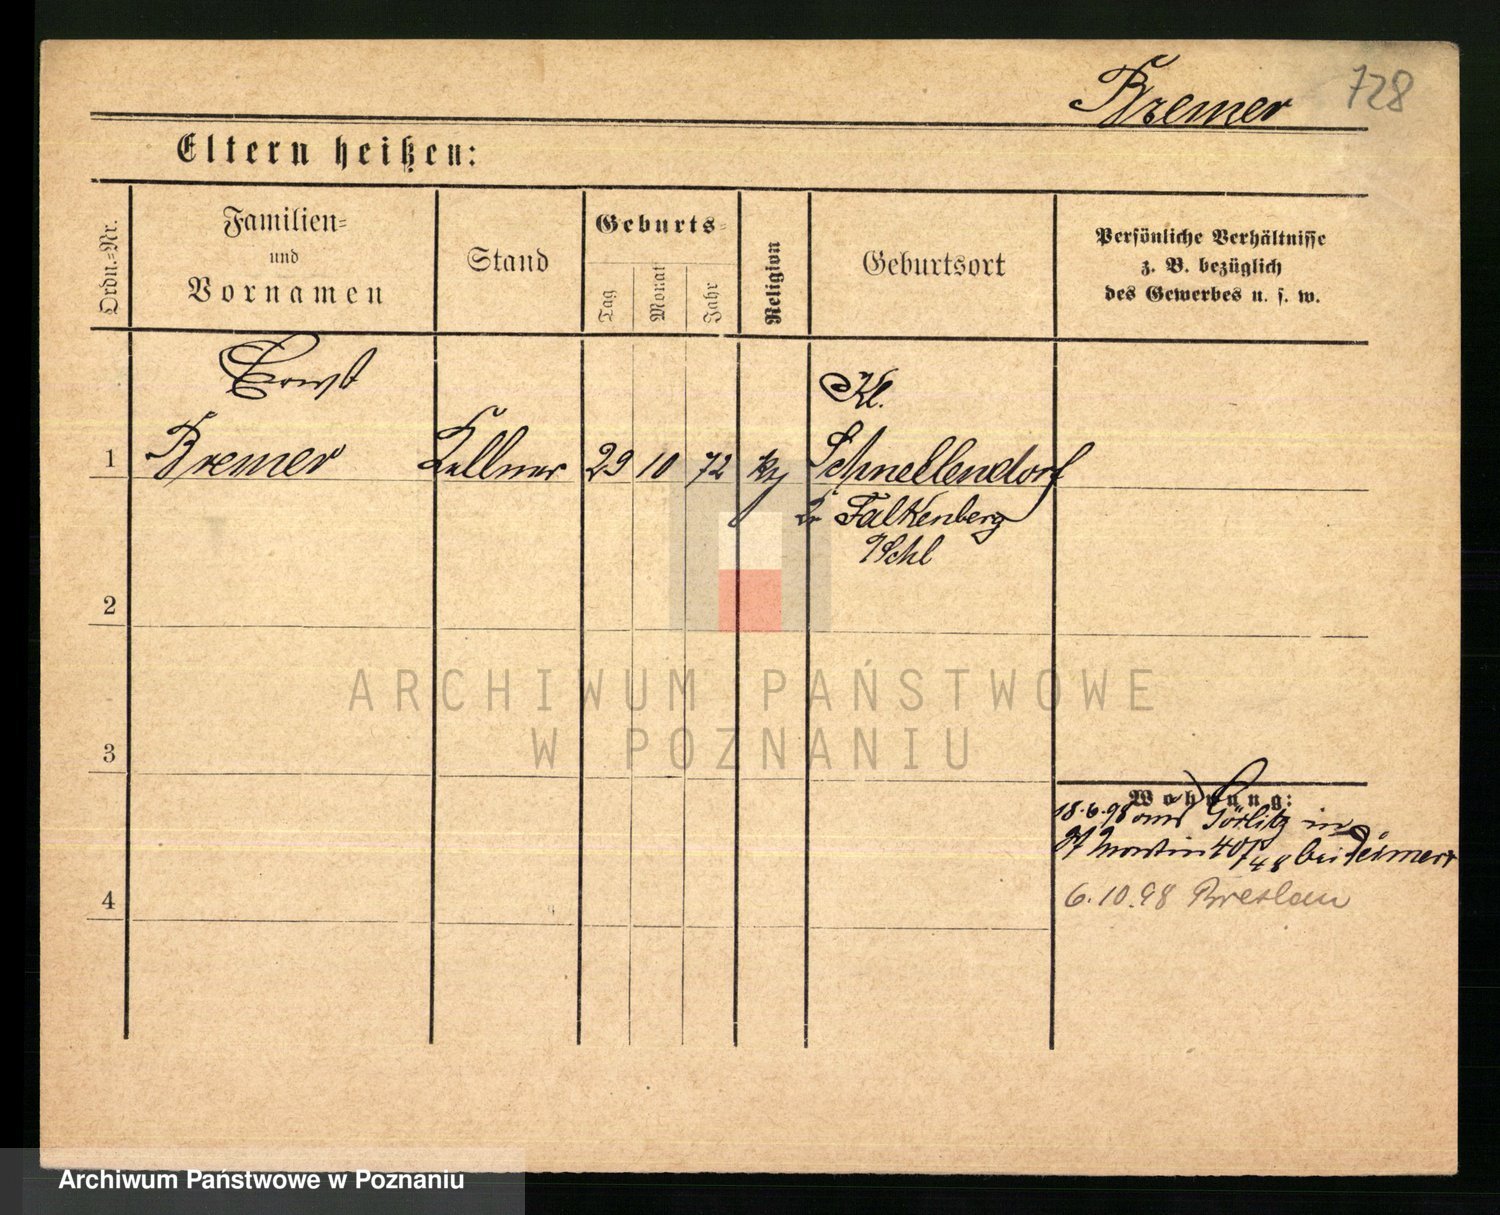 Bremer 728
Eltern heißen:
Ordn.=Nr.
Familien=
und
Vornamen
Stand
Geburts=
Tag
Monat
Jahr
Religion
Geburtsort
Persönliche Verhältnisse
z. B. bezüglich
des Gewerbes u. s. w.
Ernst
Kl.
1 Bremer Kellner 29 10 72 Schnellendorf
Falkenberg
Schl
2
ARCHIWUM PAŃSTWOWE
W POZNANIU
3
Wohnung:
18.6.98 aus Görlitz in
St Martin 40 bei
6.10.98 Breslau
4
Archiwum Państwowe w Poznaniu